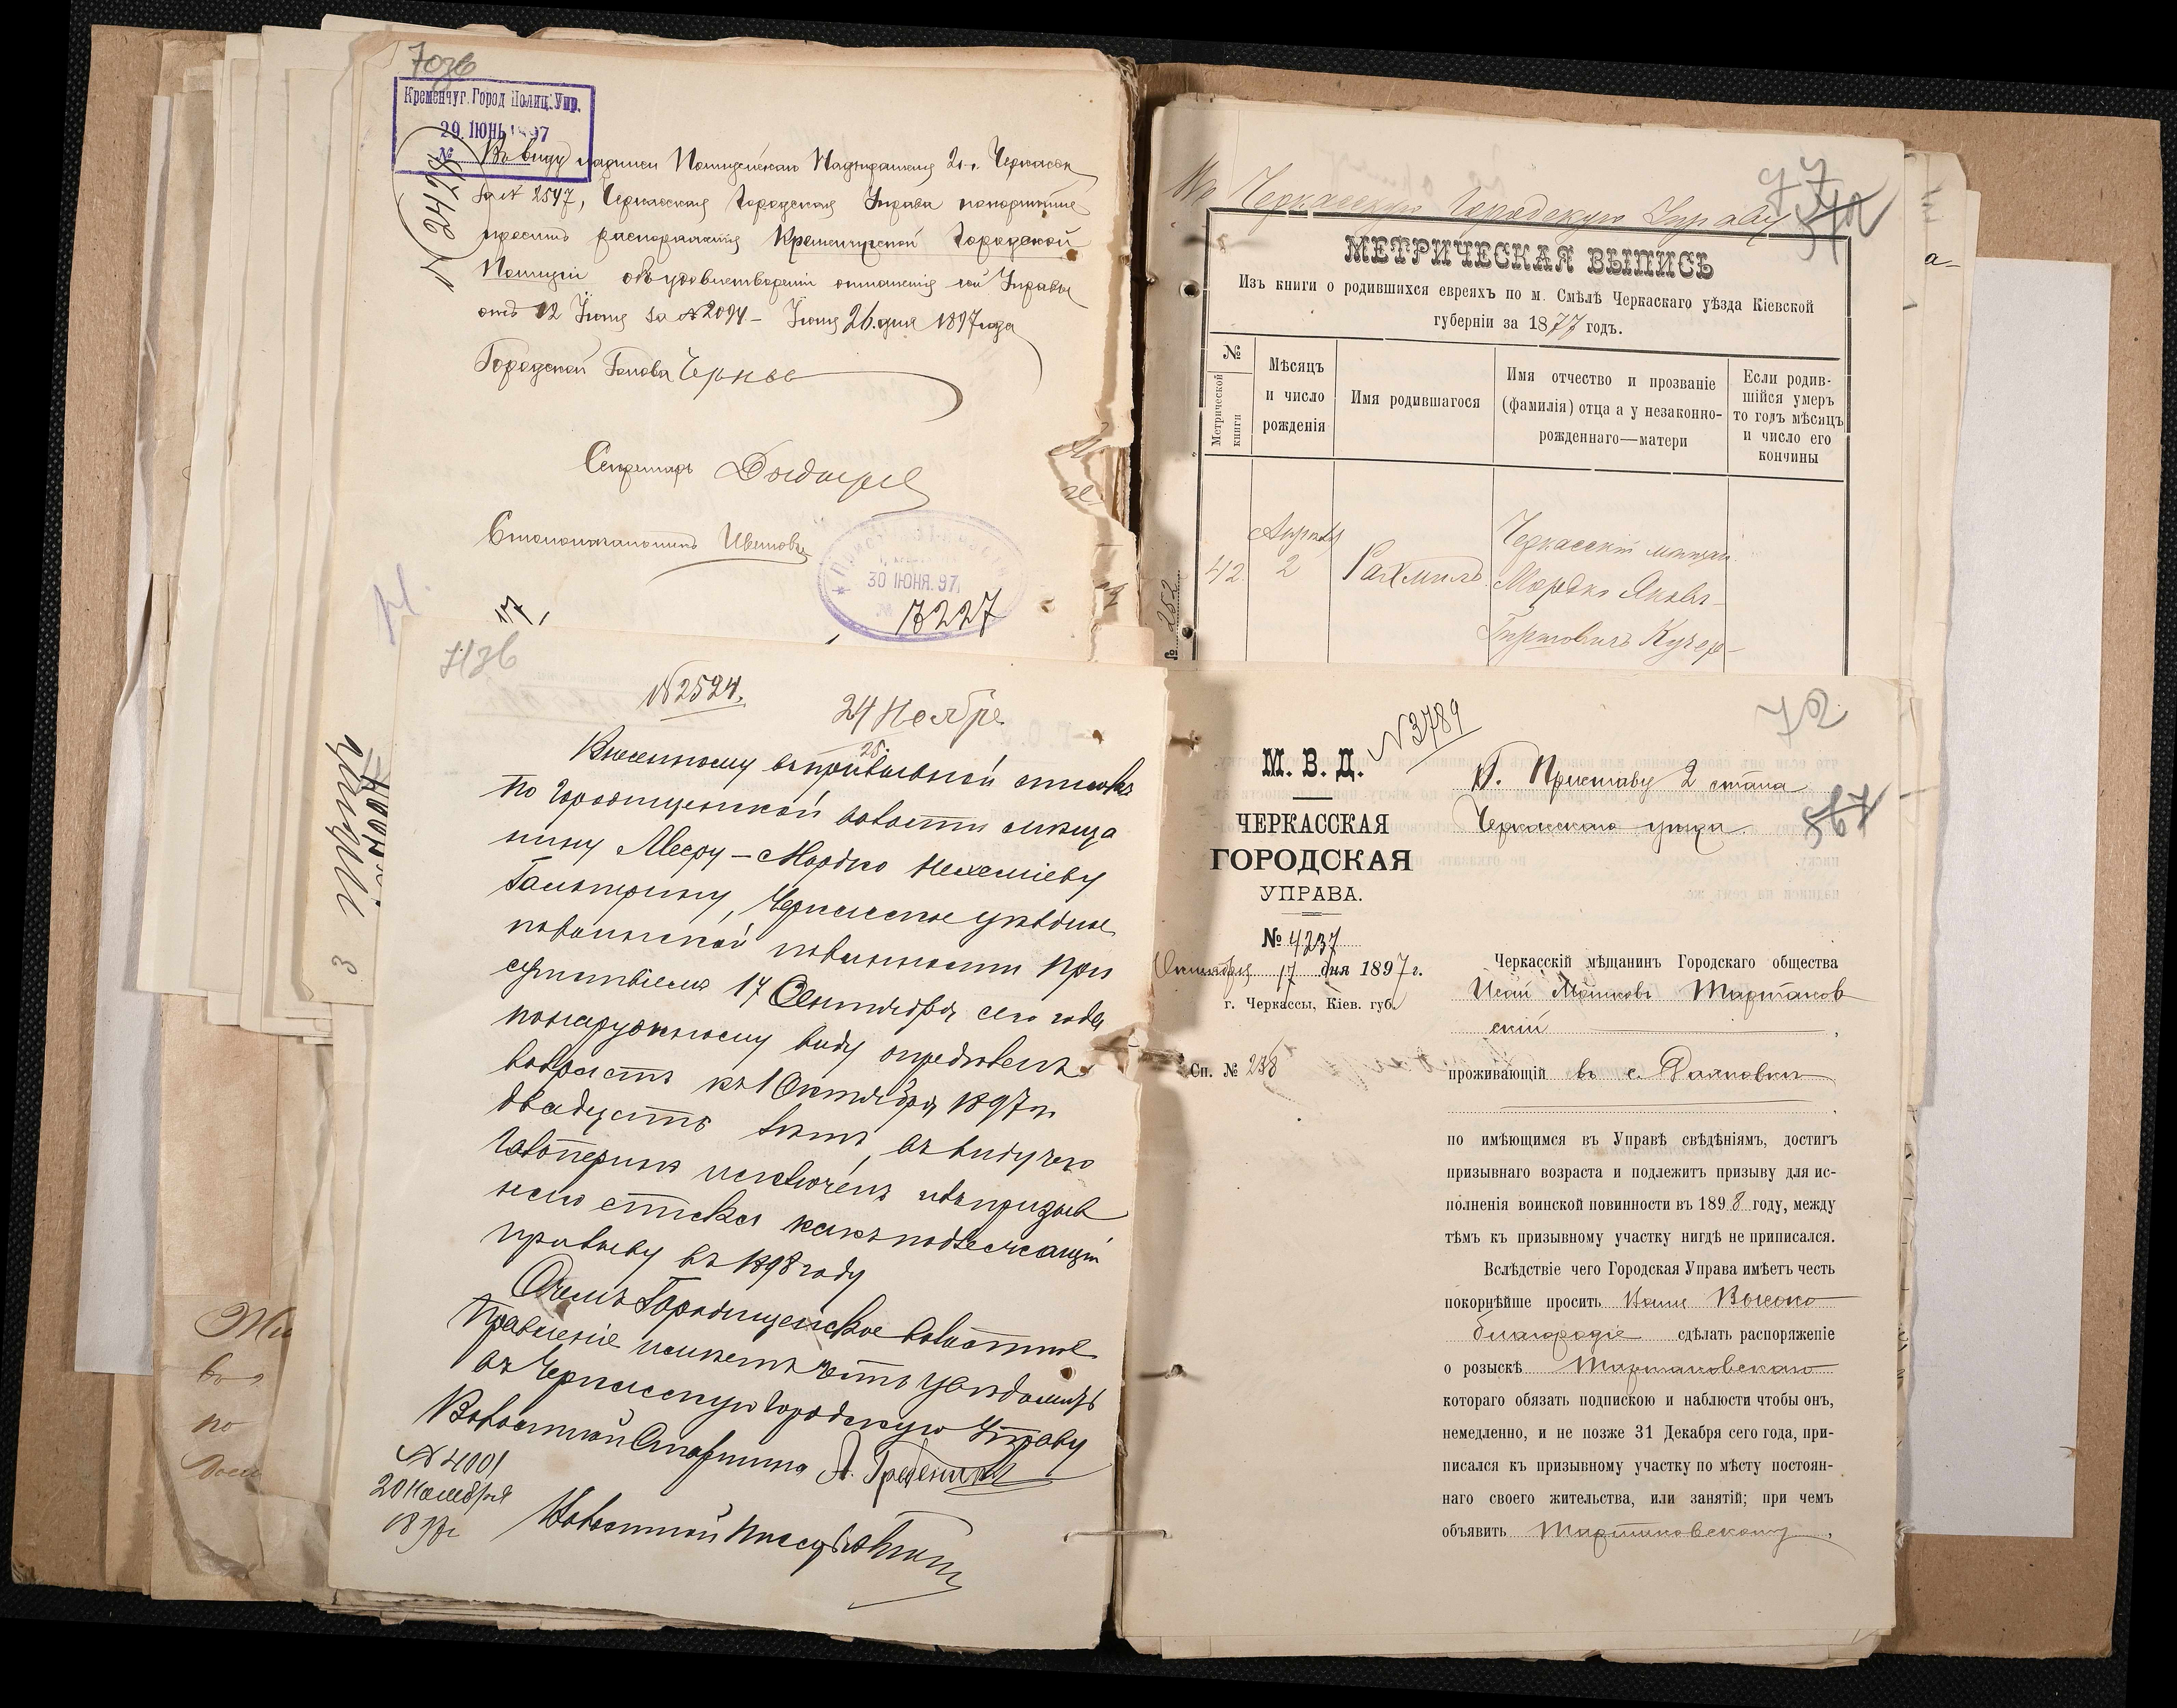 70зв
Кременчуг. Город Полиц. Упр.
29 ІЮНЬ 1897
№
Въ виду надписи Полицейскаго Надзирателя 2 ч. г. Черкассъ
за № 2547, Черкасская Городская Управа покорнѣйше
проситъ распоряженія Кременчугской Городской
Полиціи объ удовлетвореніи отношенія сей Управы
отъ 12 Іюня за № 2094 – Іюня 26 дня 1897 года
Городской Голова
Секретарь
Столоначальникъ
30 ІЮНЯ. 97
№ 7227
71зв
№ 2524.
24 Ноября
25
Внесенному въ призывной списокъ
по Городищенской волости мѣща
нину Мееру-Мордко Нехеміеву
Гальперину, Черкасское уѣздное
по воинской повинности При
сутствіемъ 17 Сентября сего года
по наружному виду опредѣленъ
возрастъ къ 1 Октября 1897 г.
двадцать лѣтъ, въ виду чего
Гальперинъ исключенъ изъ призыв
наго списка какъ подлежащій
призыву въ 1898 году
О чемъ Городищенское волостное
Правленіе имѣетъ честь увѣдомить
Черкасскую Городскую Управу
Волостной Старшина А. Гребеникъ
№ 4001
20 Ноября
1897 г.
Волостной Писарь
Въ Черкасскую Городскую Управу
МЕТРИЧЕСКАЯ ВЫПИСЬ
Изъ книги о родившихся евреяхъ по м. Смѣлѣ Черкаскаго уѣзда Кіевской
губерніи за 1877 годъ.
№
Метрической книги
Мѣсяцъ и число рожденія
Имя родившагося
Имя отчество и прозваніе (фамилія) отца а у незаконно-рожденнаго—матери
Если родив-шійся умеръ то годъ мѣсяцъ и число его кончины
42.
Апрѣля
2
Рахмиль
Черкасскій мѣщан.
Мордко Янкел-
Гершковичъ Кучер-
№ 252
72
М. В. Д.
№ 3789
ЧЕРКАССКАЯ
ГОРОДСКАЯ
УПРАВА.
№ 4237
Октября 17 дня 1897 г.
г. Черкассы, Кіев. губ.
Сп. № 238
Г. Приставу 2 стана
Черкасскаго уѣзда.
567
Черкасскій мѣщанинъ Городскаго общества
Исай Мошковъ Тартаков
скій
проживающій въ с.
по имѣющимся въ Управѣ свѣдѣніямъ, достигъ
призывнаго возраста и подлежитъ призыву для ис-
полненія воинской повинности въ 1898 году, между
тѣмъ къ призывному участку нигдѣ не приписался.
Вслѣдствіе чего Городская Управа имѣетъ честь
покорнѣйше просить Ваше Высоко
благородіе сдѣлать распоряженіе
о розыскѣ Тартаковскаго
котораго обязать подпискою и наблюсти чтобы онъ,
немедленно, и не позже 31 Декабря сего года, при-
писался къ призывному участку по мѣсту постоян-
наго своего жительства, или занятій; при чемъ
объявить Тартаковскому